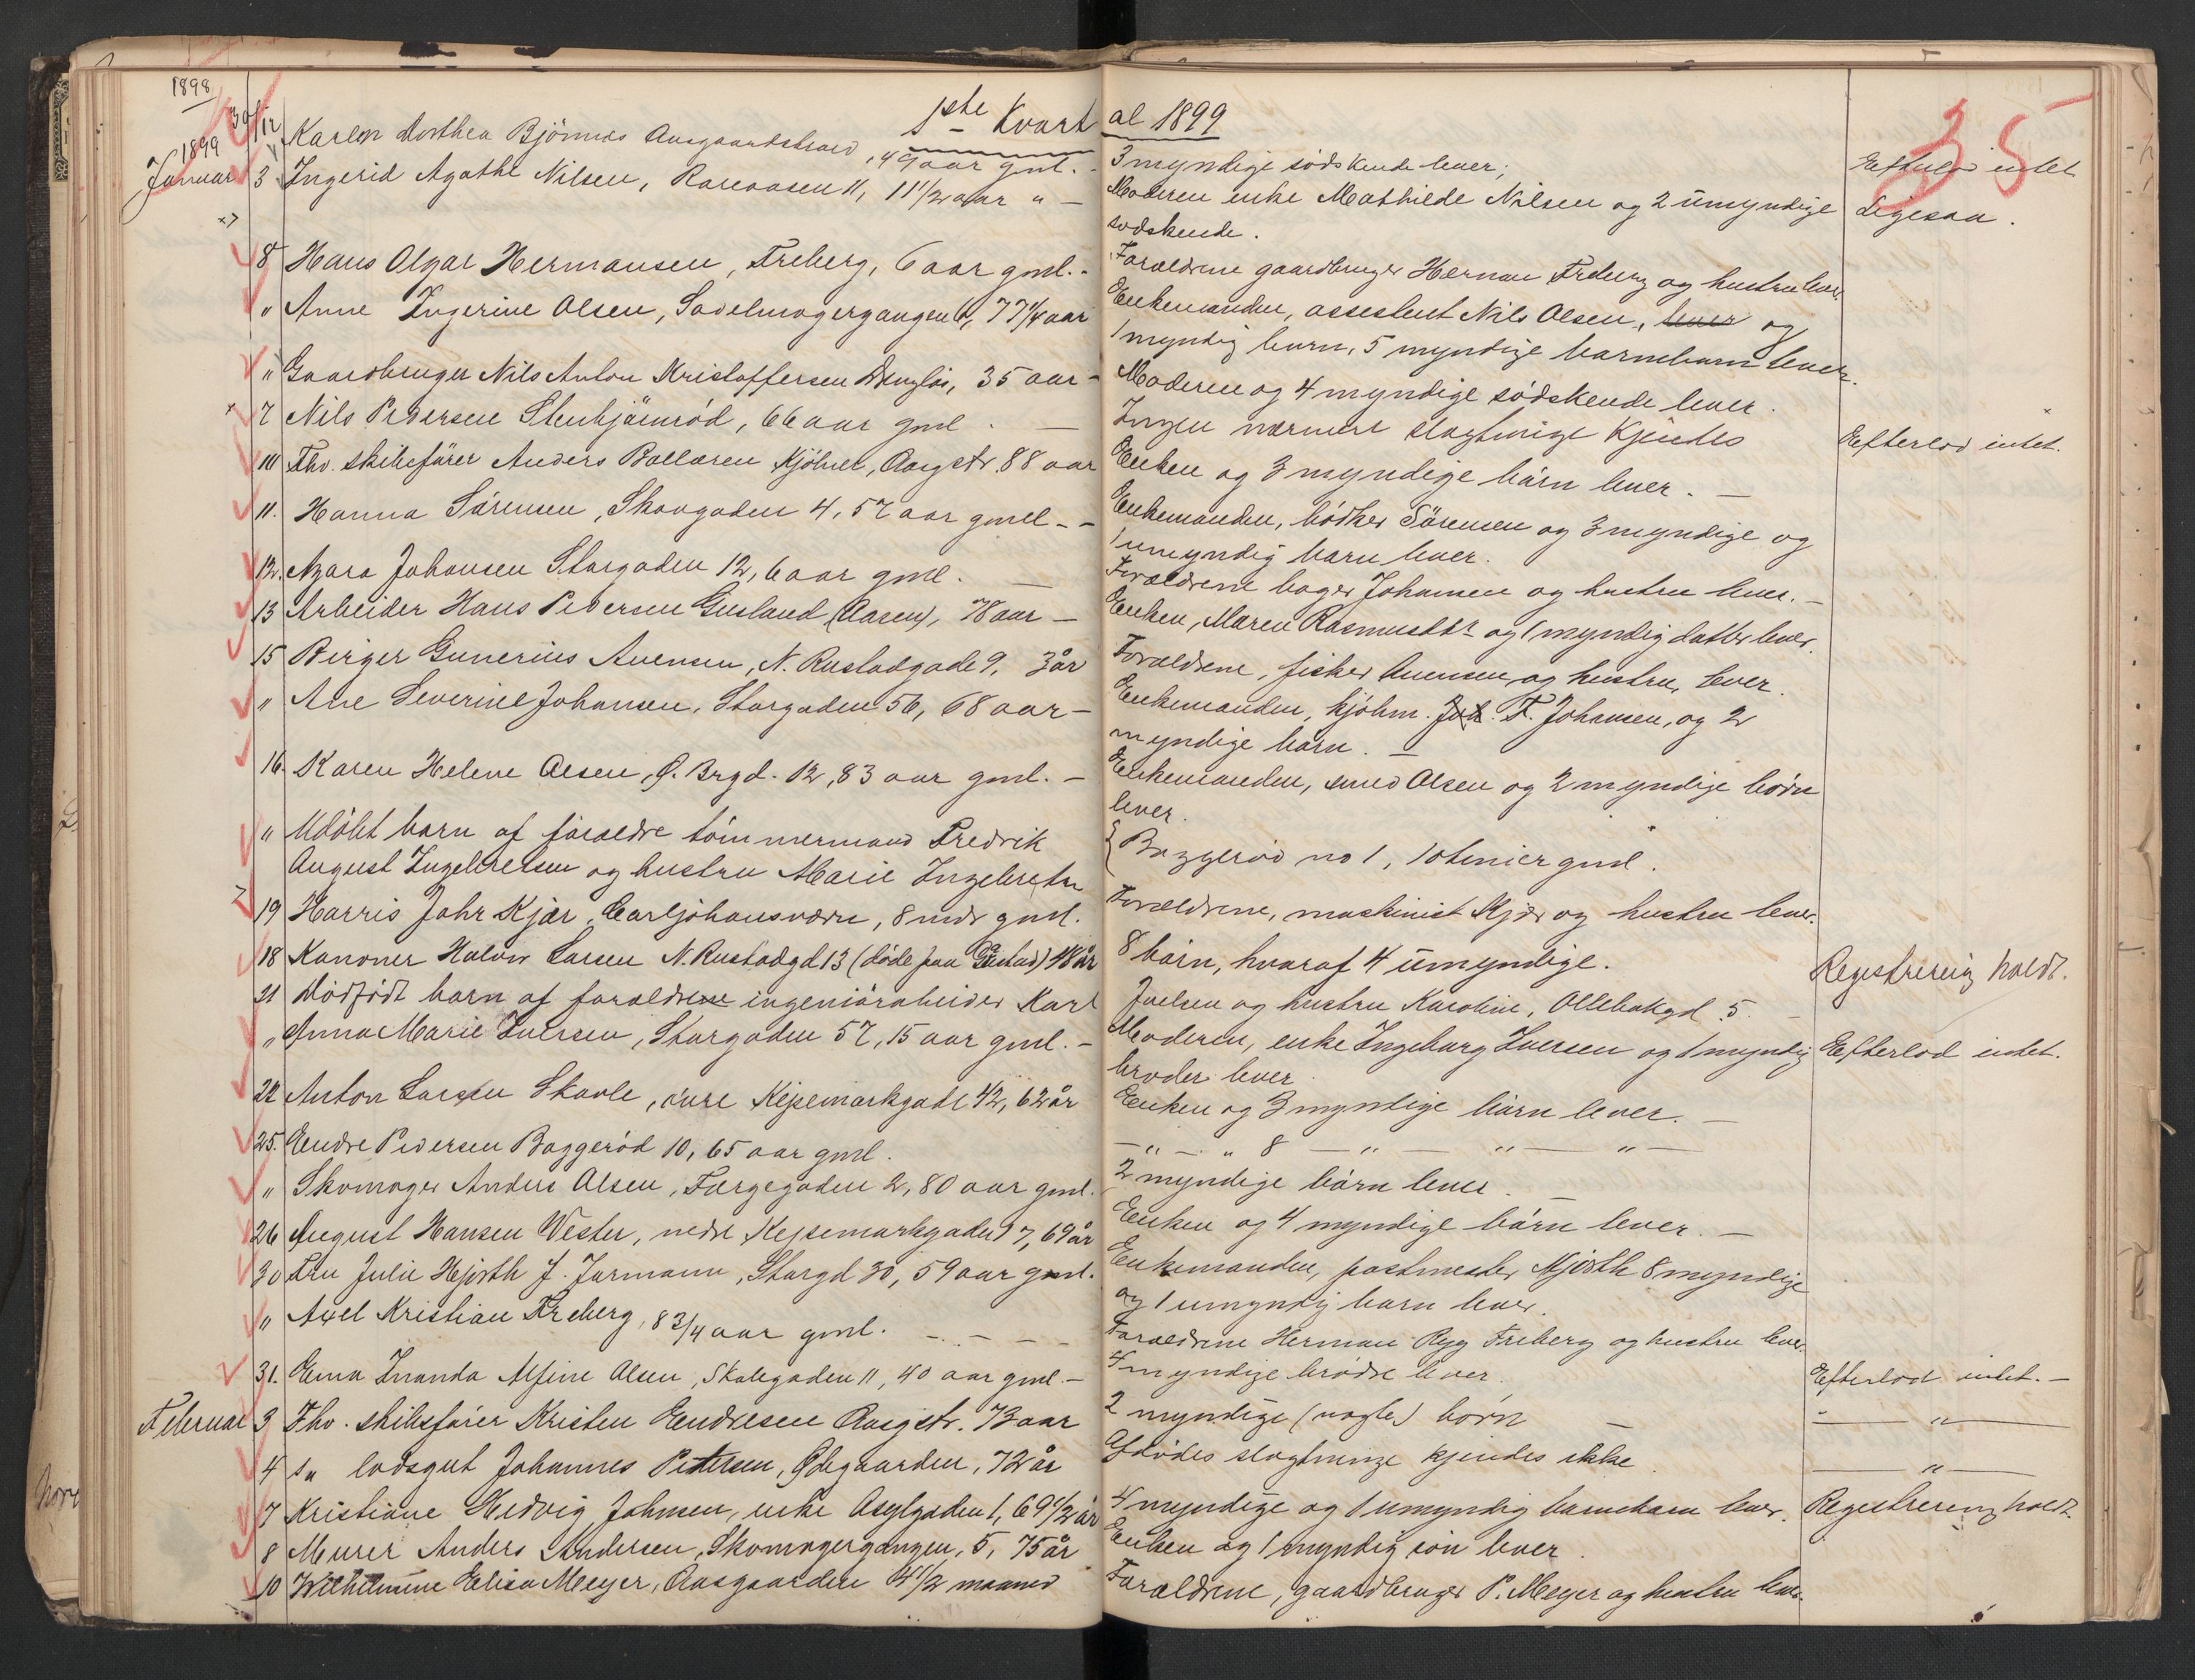 1898
1ste Kvartal 1899
35
30/12 Karen Dorthea Björnnes Aasgaardstrand, 49 aar gml. 3 myndige södskende lever; Efterlod intet
1899
Januar 3 Ingerid Agathe Nilsen, 11, 11 1/2 aar " — Moderen enke Mathilde Nilsen og 2 umyndige Ligesaa.
södskende.
8 Hans Olgar Hermansen, Freberg, 6 aar gml. - Forældrene gaardbruger Herman Freberg og hustru lever.
" Anne Ingerine Olsen, Sadelmagergangen 6, 77 1/4 aar Enkemanden, assestent Nils Olsen, lever og
1 myndig barn, 5 myndige barnebarn lever.
" Gaardbruger Nils Anton Kristoffersen, 35 aar - Moderen og 4 myndige södskende lever.
7 Nils Pedersen Stenbjörnröd, 66 aar gml. — Ingen nærmere slægtninge kjendes Efterlod intet.
10 Fhv. skibsförer Anders Bollæren Kjölner, Aasgstr. 88 aar Enken og 3 myndige börn lever. —
11. Hanna Sörensen, Skovgaden 4, 57 aar gmel. - - Enkemanden, bödker Sörensen og 3 myndige og
1 umyndig barn lever.
12. Johansen Storgaden 12, 6 aar gml. — Forældrene bager Johansen og hustru lever. —
13 Arbeider Hans Pedersen Gusland (Aasen), 78 aar — Enken, Maren Rasmusdtr og 1 myndig datter lever.
15 Birger Gunerius Avensen, N. Rustadgade 9, 3 år Forældrene, fisker Avensen og hustru, lever.
" Ane Severine Johansen, Storgaden 56, 68 aar — Enkemanden, kjöbm. Joh. F. Johansen, og 2
myndige barn. —
16. Karen Helene Olsen, Ø. Brgd. 12, 83 aar gml. — Enkemanden, smed Olsen og 2 myndige börn
lever.
" Udöbt barn af foraeldre tömmermand Fredrik
August Ingebretsen og hustru Marie Ingebretsen } Baggeröd no 1, 10 timer gml.
19 Harris Johr Kjær, Carljohansværn, 8 mdr gml. Forældrene, maskinist Kjær og hustru lever.
18 Kanoner Halvor Larsen N. Rustadgd 13 (döde paa Gaustad) 48 år 8 börn, hvoraf 4 umyndige. Registrering holdt.
21 Dödfödt barn af foraeldrene ingeniörarbeider Karl Juelsen og hustru Karoline, Ollebakgd. 5.
" Anna Marie Iversen, Storgaden 57, 15 aar gml. - Moderen, enke Ingeborg Iversen og 1 myndig Efterlod intet.
broder lever.
22 Anton Larsen Skavle, övre Kejsemarkgade 42, 62 år Enken og 3 myndige börn lever. —
25. Endre Pedersen Baggeröd 10, 65 aar gml. — " — " 8 — " — " — " —
" Skomager Anders Olsen, Færgegaden 2, 80 aar gml. 2 myndige börn lever. —
26 August Hansen Wester, nedre Kejsemarkgaden 7, 69 år Enken og 4 myndige börn lever. —
30 Fru Julie Hjorth f. Jurmann, Storgd 30, 59 aar gml. Enkemanden, postmester Hjorth 8 myndige
og 1 umyndig barn lever.
" Axel Kristian Freberg, 8 3/4 aar gml. - - - Foraeldrene Herman Ryg Freberg og hustru lever.
31. Ema Inanda Alfine Olsen, Skolegaden 11, 40 aar gml — 4 myndige brödre lever. Efterlod intet. —
Februar 3 Fhv. skibsförer Kristen Endresen Aasgstr. 73 aar 2 myndige börn — — " —
4 lodsgut Johannes Petersen, Ødegaarden, 72 år Afdödes slægtninge kjendes ikke — " —
7 Kristiane Hedvig Johnsen, enke Asylgaden 1, 69 1/2 år 4 myndige og 1 umyndig barnebarn lever. Registrering holdt.
8 Murer Anders Andersen, Skomagergangen, 5, 75 år Enken og 1 myndig sön lever.
10 Wilhelmine Elisa Meyer, Aasgaarden 4 1/2 maaned Forældrene, gaardbruger P. Meyer og hustru lever.